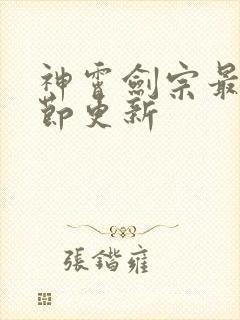 神霄劍宗最
節更新
張鍇雍